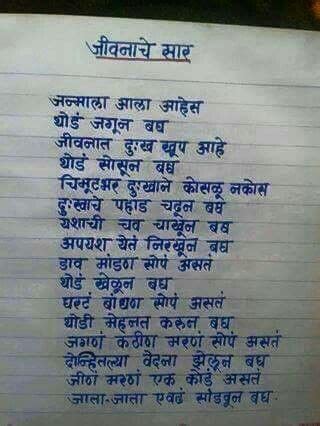 जीवनाचे सार
जन्माला आला आहेस
थोडं जगून बघ
जीवनात दुःख खूप आहे
थोडं सोसून बघ
चिमूटभर दुःखाने कोसळू नकोस
दुःखाचे पहाड चढून बघ
यशाची चव चाखून बघ
अपयश येतं निरखून बघ
डाव मांडणं सोपं असतं
थोडं खेळून बघ
घरटं बांधणं सोपं असतं
थोडी मेहनत करून बघ
जगणं कठीण मरणं सोपं असतं
दोन्हितल्या वेदना झेलून बघ
जीणं मरणं एक कोडं असतं
जाता-जाता एवढं सोडवून बघ